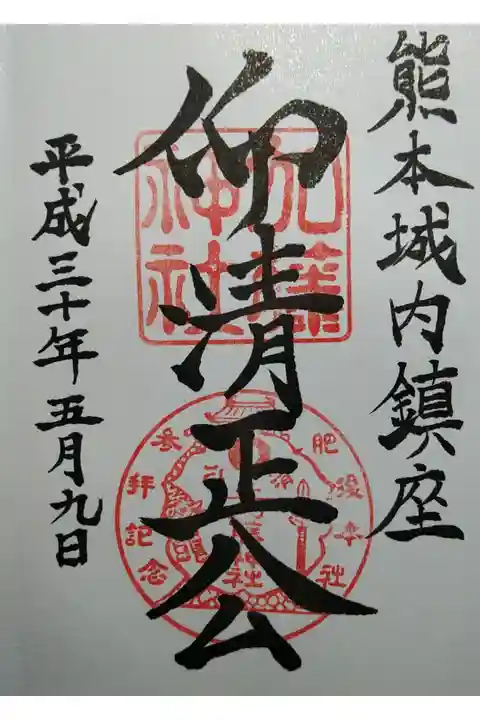 熊本城内鎮座
仰清正公
平成三十年五月九日
加藤神社
肥後本
社
参拝記念